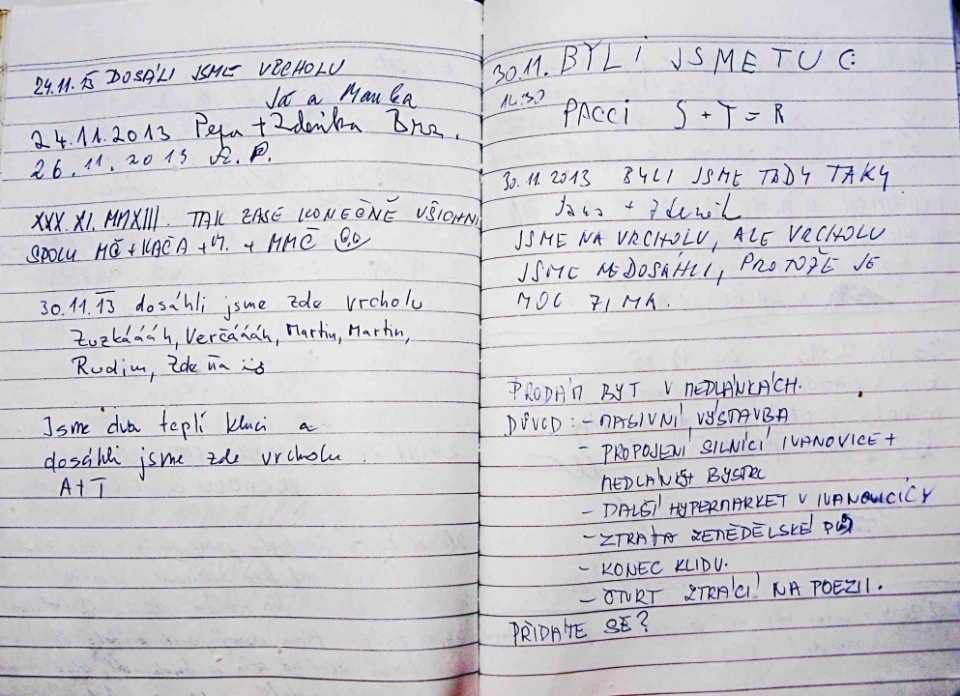 24.11.13 DOSÁLI JSME VRCHOLU
Já a Manka
24.11.2013 Pepa + Zdenka
26.11.2013 P.
XXX.XI.MMXIII. TAK ZASE KONEČNĚ VŠICHNI
SPOLU MČ+KAČA + + MMČ
30.11.13 dosáhli jsme zde vrcholu
Zuzkáááh, Verčáááh, Martin, Martin,
Rudim, Zdeňa
Jsme dva teplí kluci a
dosáhli jsme zde vrcholu.
A+T
30.11. BYLI JSME TU C:
14:30
PACCI S + T = R
30.11.2013 BYLI JSME TADY TAKY
Jana + Zdeněk
JSME NA VRCHOLU, ALE VRCHOLU
JSME NEDOSÁHLI, PROTOŽE JE
MOC ZIMA.
PRODÁM BYT V MEDLÁNKÁCH.
DŮVOD: - MASIVNÍ VÝSTAVBA
- PROPOJENÍ SILNÍCÍ IVANOVICE +
MEDLÁNKY BYSTRC
- DALŠÍ HYPERMARKET V
- ZTRÁTA ZEMĚDĚLSKÉ
- KONEC KLIDU.
- ZTRÁCÍ NA POEZII.
PŘIDÁTE SE?